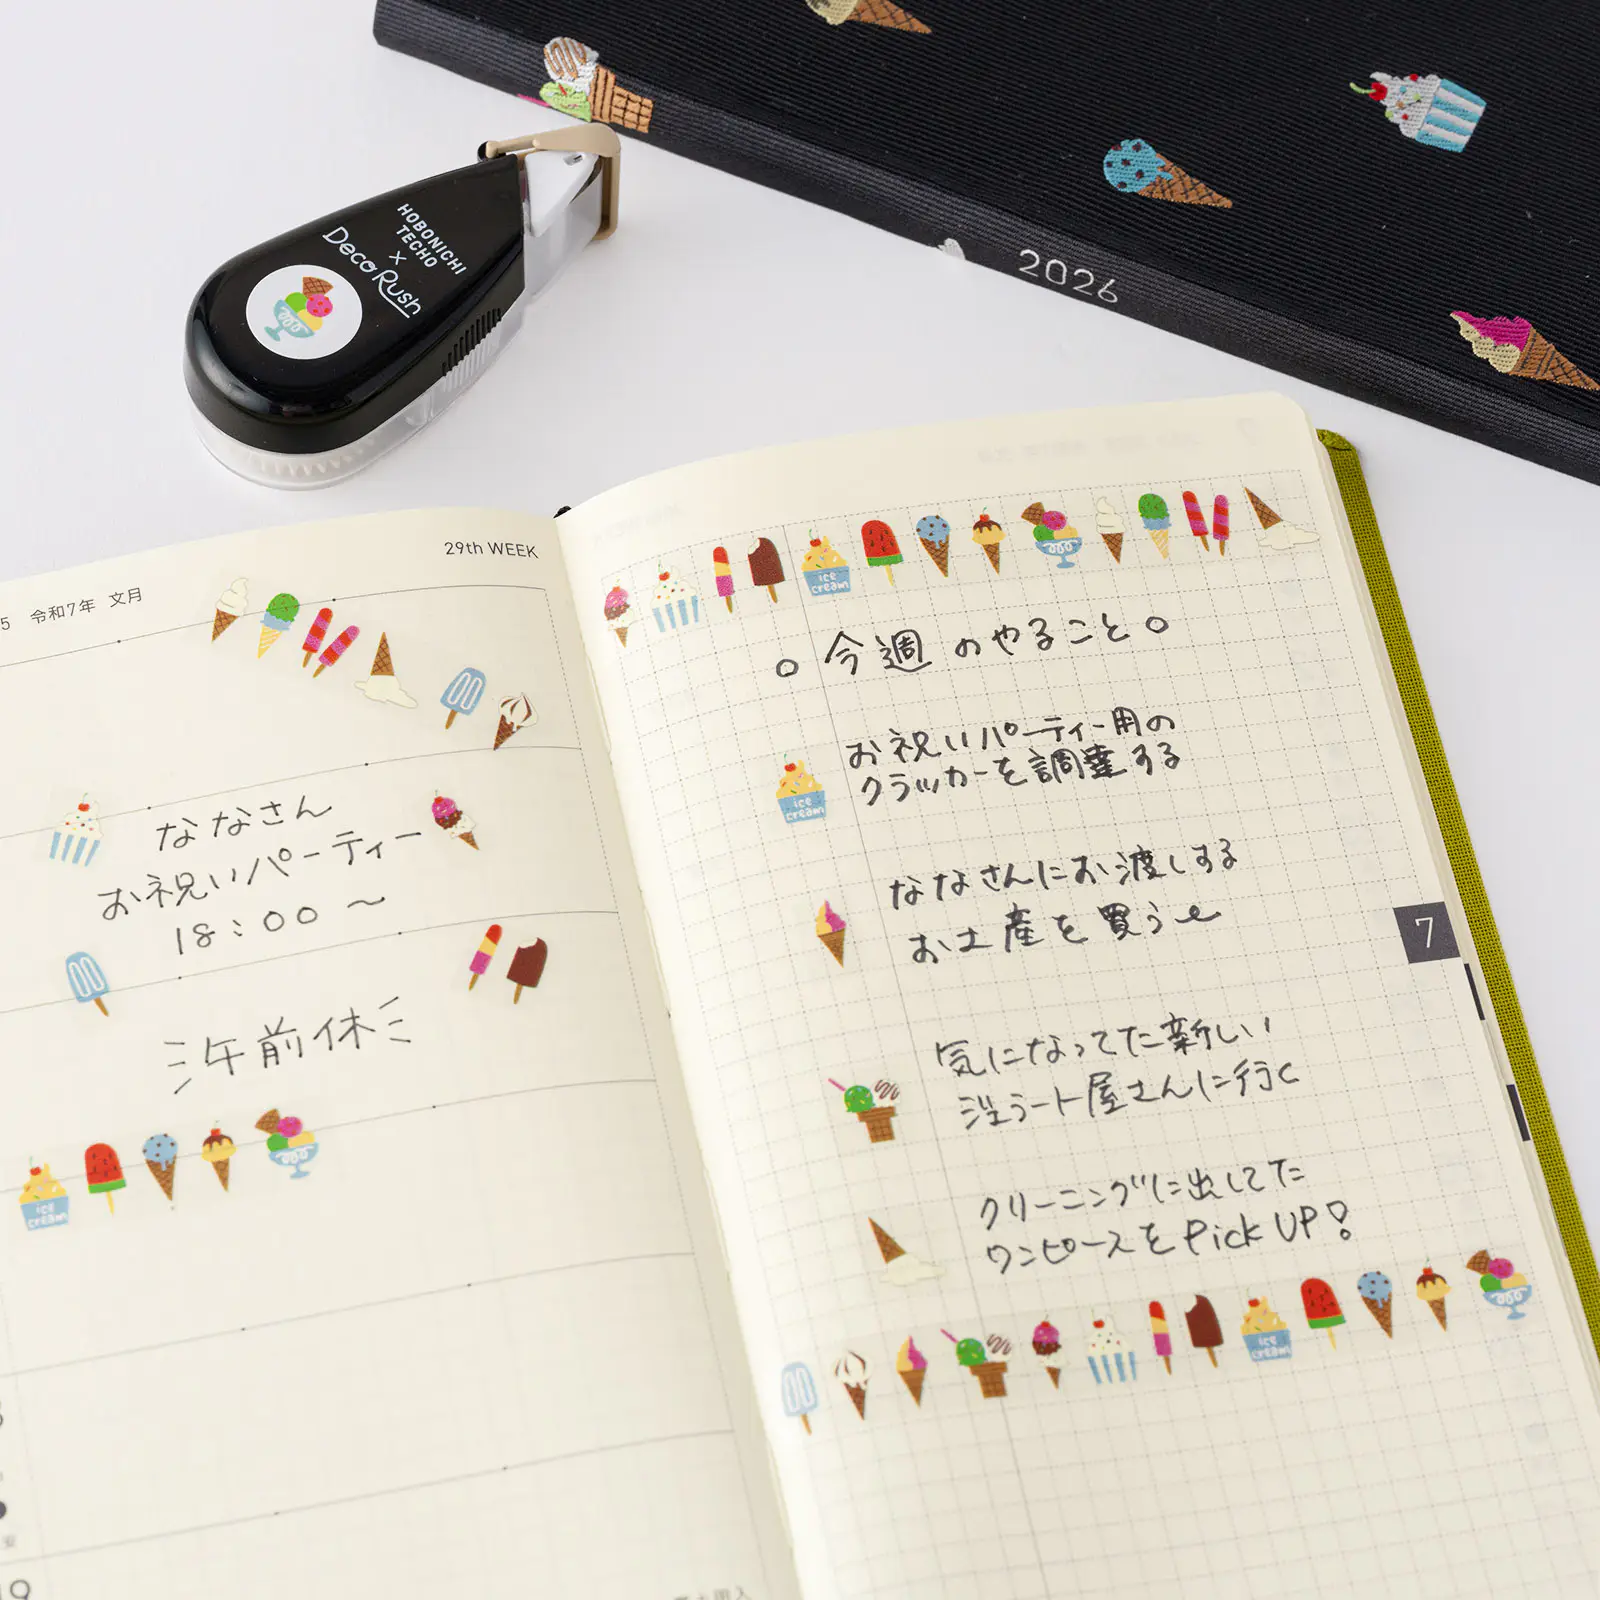 HOBONICHI
TECHO
×
DecoRush
2026
29th WEEK
5 令和7年 文月
ななさん
お祝いパーティー
18:00〜
午前休
ice
cream
ice
cream
○今週のやること○
ice
cream
お祝いパーティー用の
クラッカーを調達する
ななさんにお渡しする
お土産を買う
気になってた新しい
ジェラート屋さんに行く
クリーニングに出してた
ワンピースをPick UP!
ice
cream
7
19